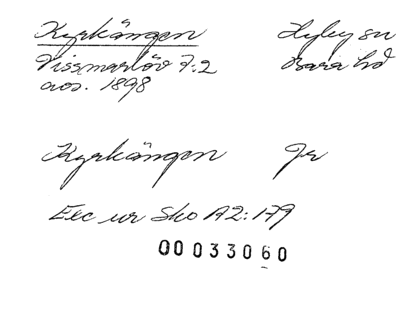 Kyrkängen Hyby sn
Vissmarlöv 7:2 Bara hd
avs. 1898
Kyrkängen Jr
Exc ur Sko A2:179
00033060